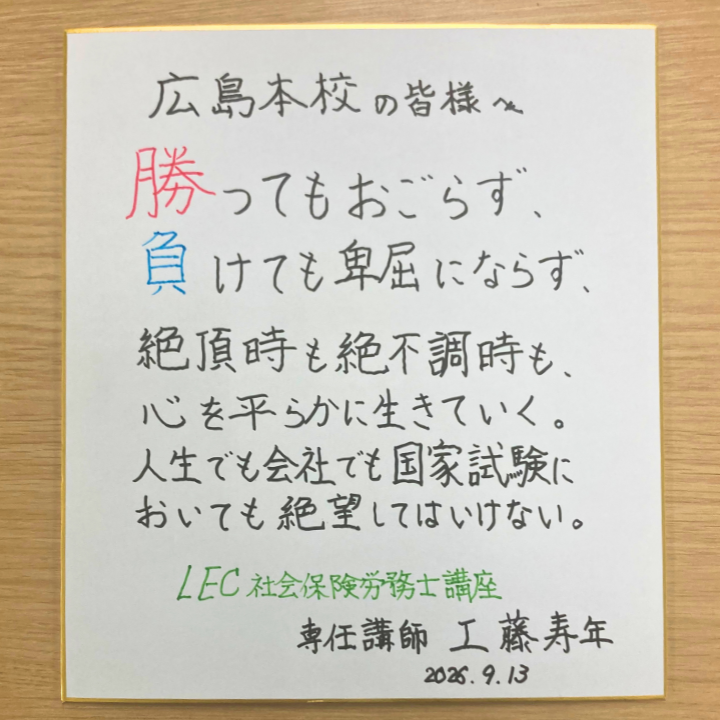 広島本校の皆様へ
勝ってもおごらず、
負けても卑屈にならず、
絶頂時も絶不調時も、
心を平らかに生きていく。
人生でも会社でも国家試験に
おいても絶望してはいけない。
LEC社会保険労務士講座
専任講師 工藤寿年
2026.9.13